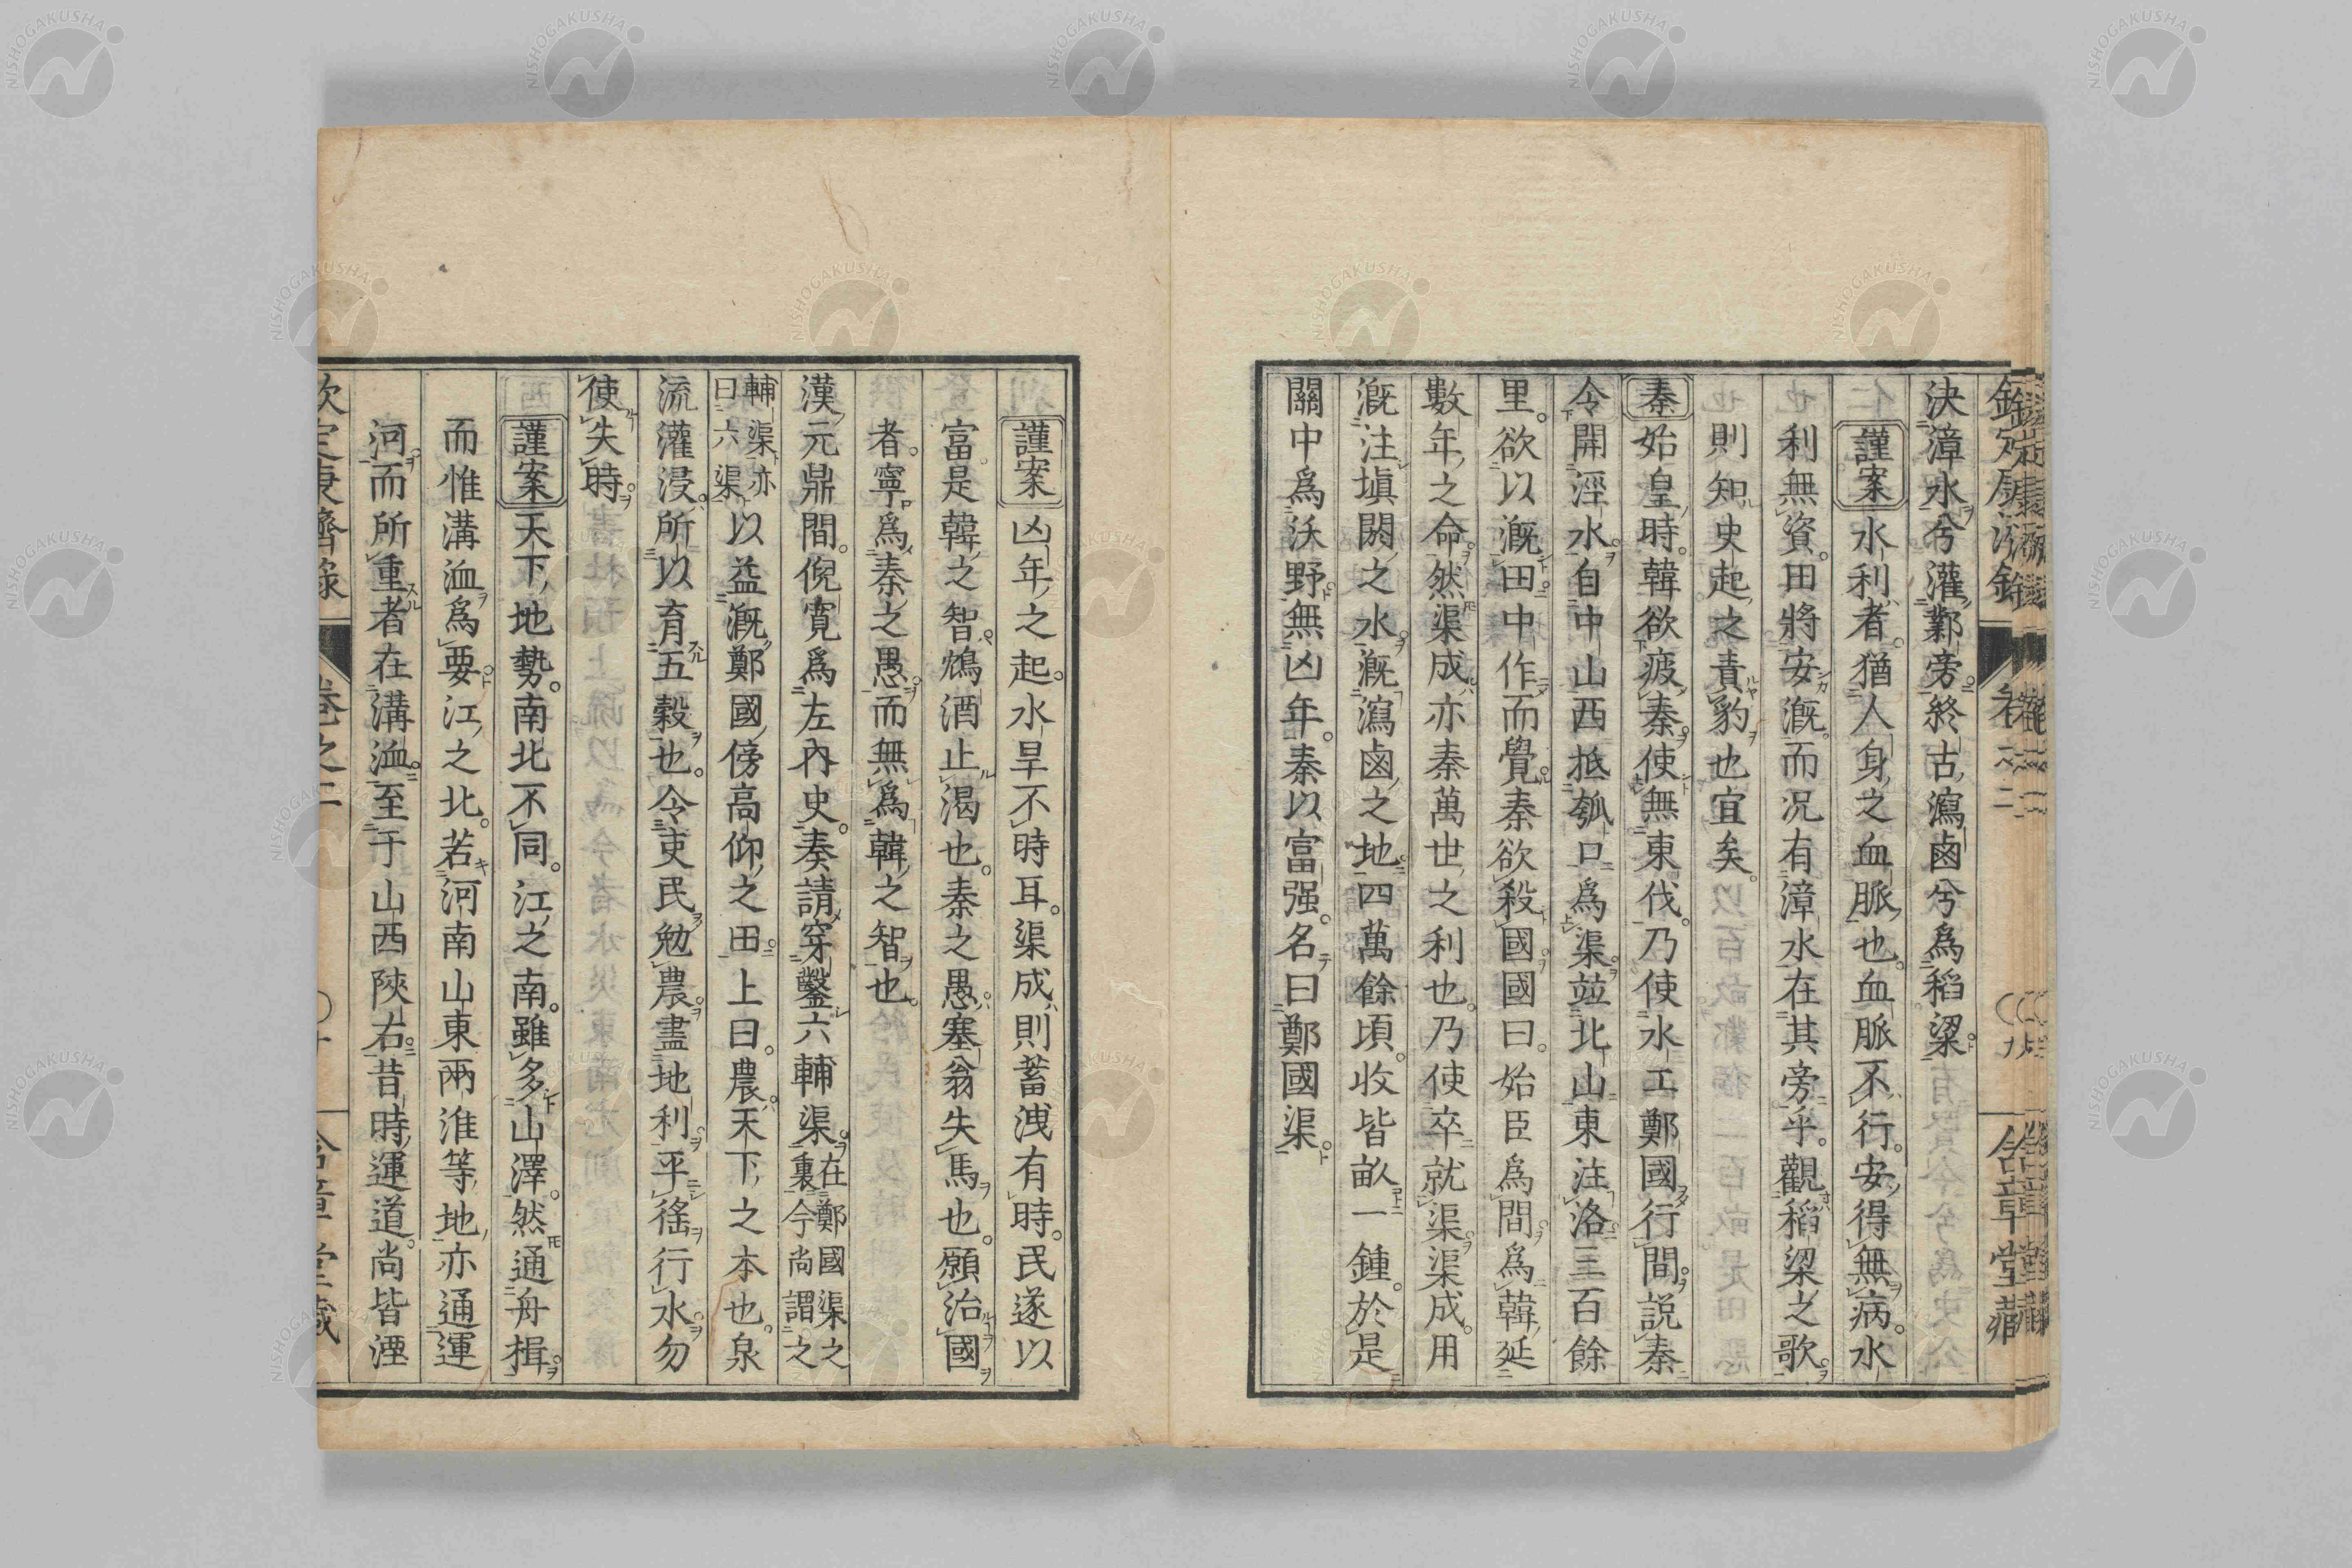 決漳水兮灌鄴旁終古瀉鹵兮爲稻粱
謹案水利者猶人身之血脈也血脈不行安得無病水
利無資田將安漑而况有漳水在其旁乎觀稻粱之歌
則知史起之責豹也宜矣
秦始皇時韓欲疲秦使無東伐乃使水工鄭國行間説秦
令開涇水自中山西抵瓠口爲渠並北山東注洛三百餘
里欲以漑田中作而覺秦欲殺國國曰始臣爲間爲韓延
數年之命然渠成亦秦萬世之利也乃使卒就渠渠成用
漑注塡閼之水漑瀉鹵之地四萬餘頃收皆畝一鍾於是
關中爲沃野無凶年秦以富强名曰鄭國渠
謹案凶年之起水旱不時耳渠成則蓄洩有時民遂以
富是韓之智鴆酒止渴也秦之愚塞翁失馬也願治國
者寧爲秦之愚而無爲韓之智也
漢元鼎間倪寛爲左內史奏請穿鑿六輔渠在鄭國渠之裏今尚謂之
輔渠亦曰六渠以益漑鄭國傍高仰之田上曰農天下之本也泉
流灌浸所以育五穀也令吏民勉農盡地利平徭行水勿
使失時
謹案天下地勢南北不同江之南雖多山澤然通舟楫
而惟溝洫爲要江之北若河南山東兩淮等地亦通運
河而所重者在溝洫至于山西陝右昔時運道尚皆湮
欽定康濟錄 卷之二